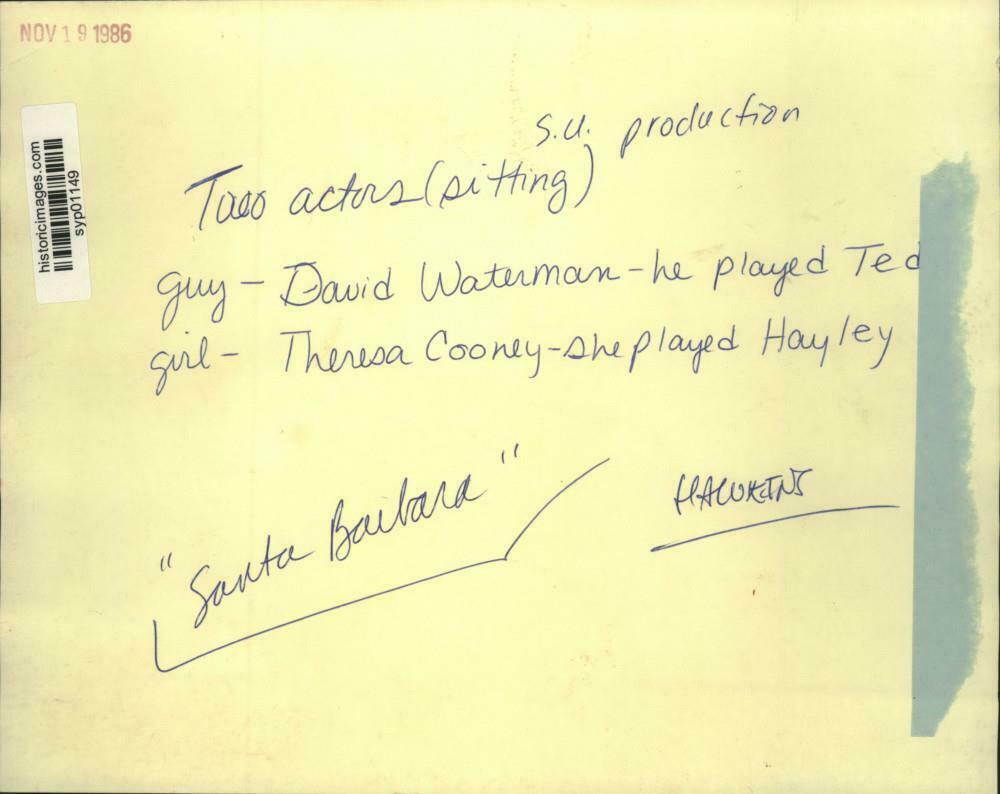 NOV 19 1986
historicimages.com
syp01149
S.U. production
Two actors (sitting)
guy - David Waterman - he played Ted
girl - Theresa Cooney - she played Hayley
"Santa Barbara"
HAWKINS